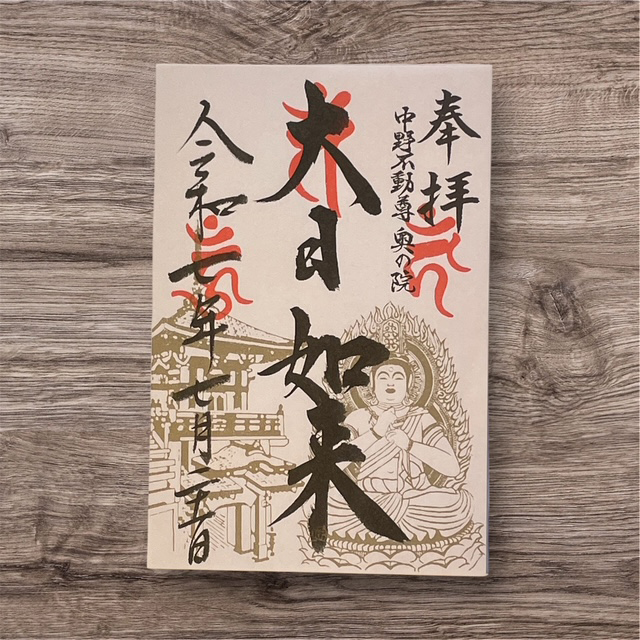 奉拝
中野不動尊 奥の院
大日如来
令和七年七月二十日